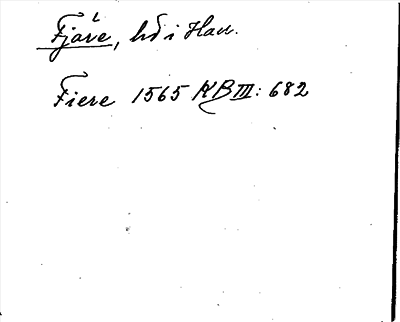 Fjäre, hd i Hall.
Fiere 1565 KB III: 682